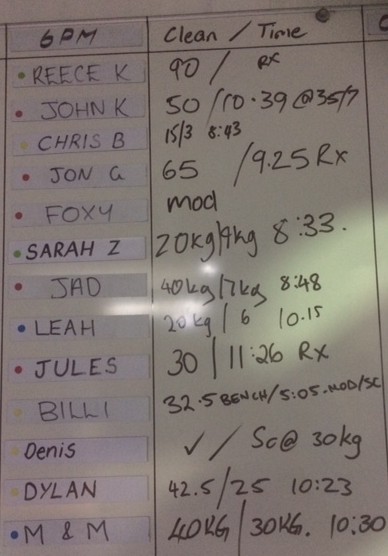 6PM Clean / Time
REECE K 90 / RX
JOHN K 50 / 10.39 @35/7
CHRIS B 15/3 8:43
JON G 65 / 9.25 RX
FOXY mod
SARAH Z 20kg/9kg 8:33.
JAD 40kg/7kg 8:48
LEAH 20kg / 6 10.15
JULES 30 / 11:26 RX
BILLI 32.5 BENCH/5:05.MOD/SC
Denis ✓ / Sc@ 30kg
DYLAN 42.5/25 10:23
M & M 40KG / 30KG. 10:30